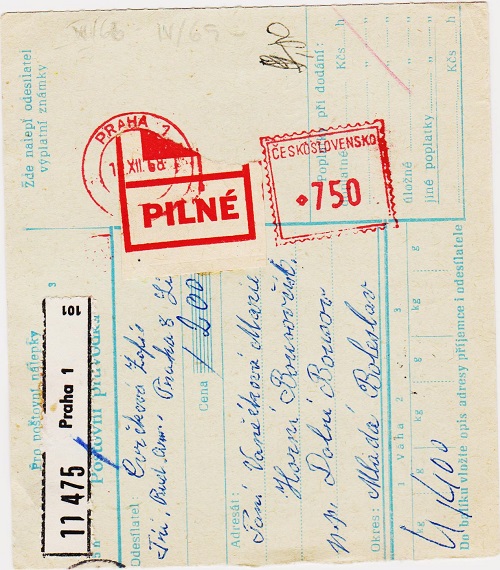 IV/69
Žde nalepí odesílatel
výplatní známky
PRAHA 1
XII. 68
PILNÉ
ČESKOSLOVENSKO
750
Poplatky při dodání:
Kčs h
úložné
jiné poplatky
Kčs h
Pro poštovní nálepky
101
Praha 1
11 475
Poštovní průvodka
Odesílatel:
Praha 8
Cena
1200
Adresát:
Paní Vaněčková Marie
Horní Bousov
p.p. Dolní Bousov
Okres: Mladá Boleslav
Váha
kg g
kg g
Do balíku vložte opis adresy příjemce i odesílatele